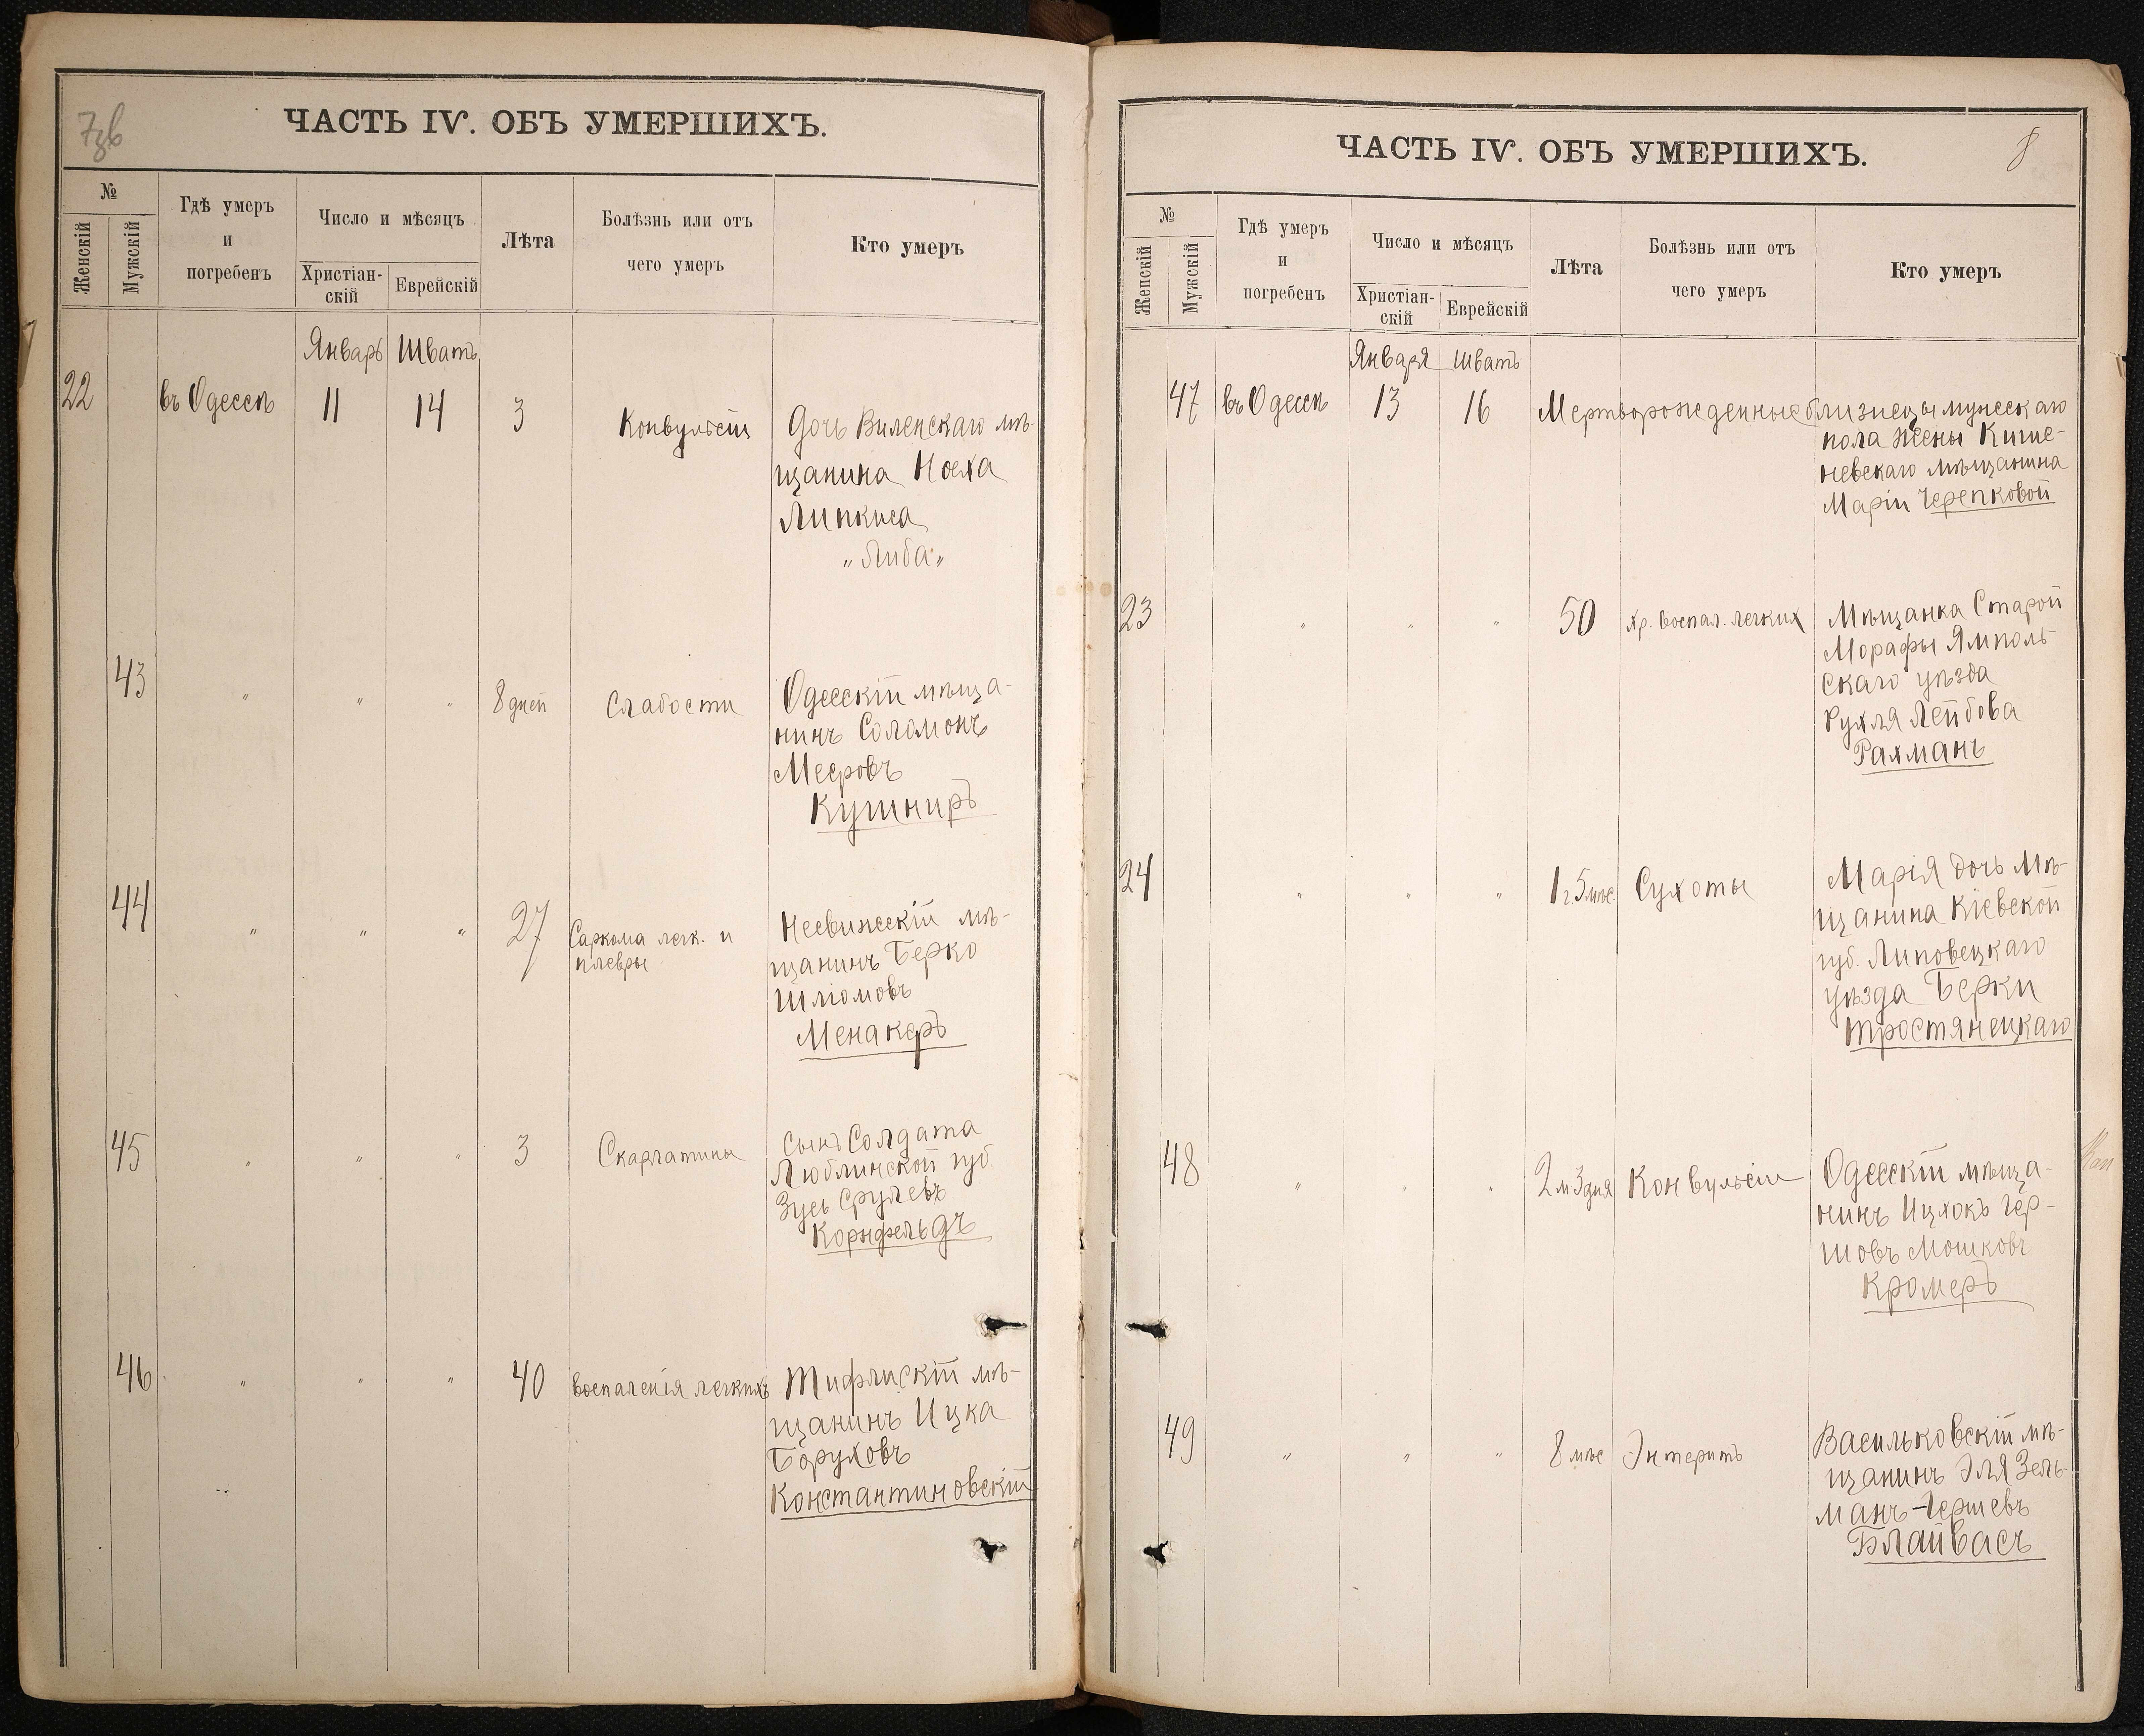 7зв
ЧАСТЬ IV. ОБЪ УМЕРШИХЪ.
№
Женскій
Мужскій
Гдѣ умеръ
и
погребенъ
Число и мѣсяцъ
Христіан-
скій
Еврейскій
Лѣта
Болѣзнь или отъ
чего умеръ
Кто умеръ
Январь Шватъ
22 въ Одессѣ 11 14 3 Конвульсіи Дочь Виленскаго мѣ-
щанина Ноеха
Липкиса
„Либа„
43 " " " 8 дней Слабости Одесскій мѣща-
нинъ Соломонъ
Мееровъ
Кушниръ
44 " " " 27 Саркома легк. и
плевры
Несвижескій мѣ-
щанинъ Берко
Шліомовъ
Менакеръ
45 " " " 3 Скарлатины Сынъ Солдата
Люблинской губ.
Зусь Срулевъ
Корнфельдъ
46 " " " 40 воспаленія легкихъ Тифлискій мѣ-
щанинъ Ицка
Боруховъ
Константиновскій
8
ЧАСТЬ IV. ОБЪ УМЕРШИХЪ.
№
Женскій
Мужскій
Гдѣ умеръ
и
погребенъ
Число и мѣсяцъ
Христіан-
скій
Еврейскій
Лѣта
Болѣзнь или отъ
чего умеръ
Кто умеръ
Января Шватъ
47 въ Одессѣ 13 16 Мертворожденные близнецы мужескаго
пола жены Кише-
невскаго мѣщанина
Маріи Черепковой
23 " " " 50 хр. воспал. легких Мѣщанка Старой
Морафы Ямполь-
скаго уѣзда
Рухля Лейбова
Рахманъ
24 " " " 1 г. 5 мѣс. Сухоты Марія дочь Мѣ-
щанина Кіевской
губ. Липовецкаго
уѣзда Берки
Тростянецкаго
48 " " " 2 м 3 дня Конвульсіи Одесскій мѣща-
нинъ Ицхокъ Гер-
шовъ Мошковъ
Кромеръ
49 " " " 8 мѣс Энтеритъ Васильковскій мѣ-
щанинъ Эля Зель-
манъ-Гершевъ
Блайвасъ